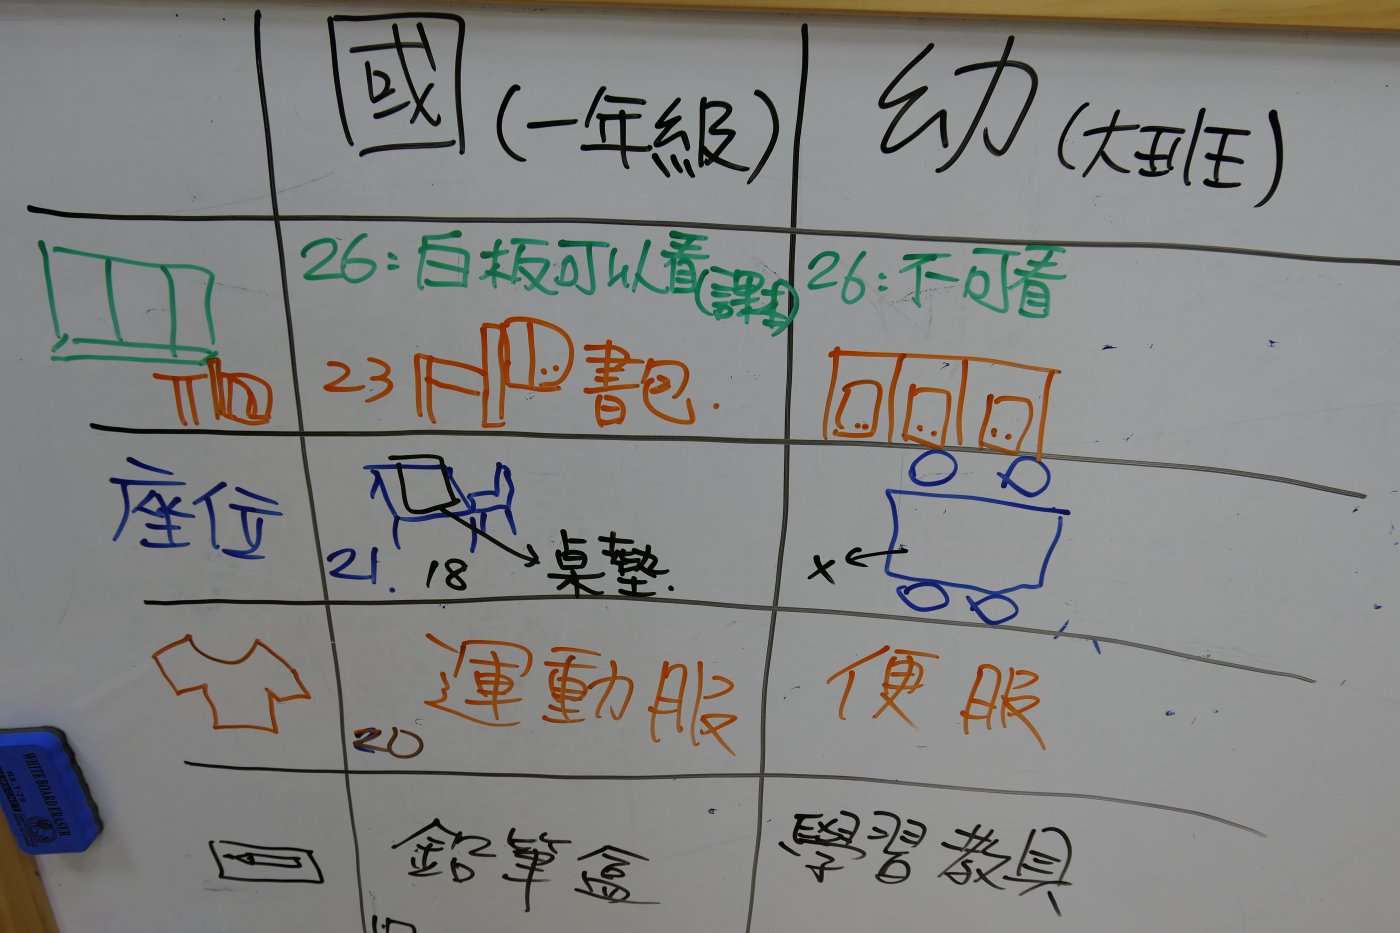 國 (一年級)
幼 (大班)
26:白板可以看(課本)
26:不可看
23 書包.
座位
21. 18 桌墊.
x
運動服
便服
20
鉛筆盒
學習教具
WHITE BOARD ERASER